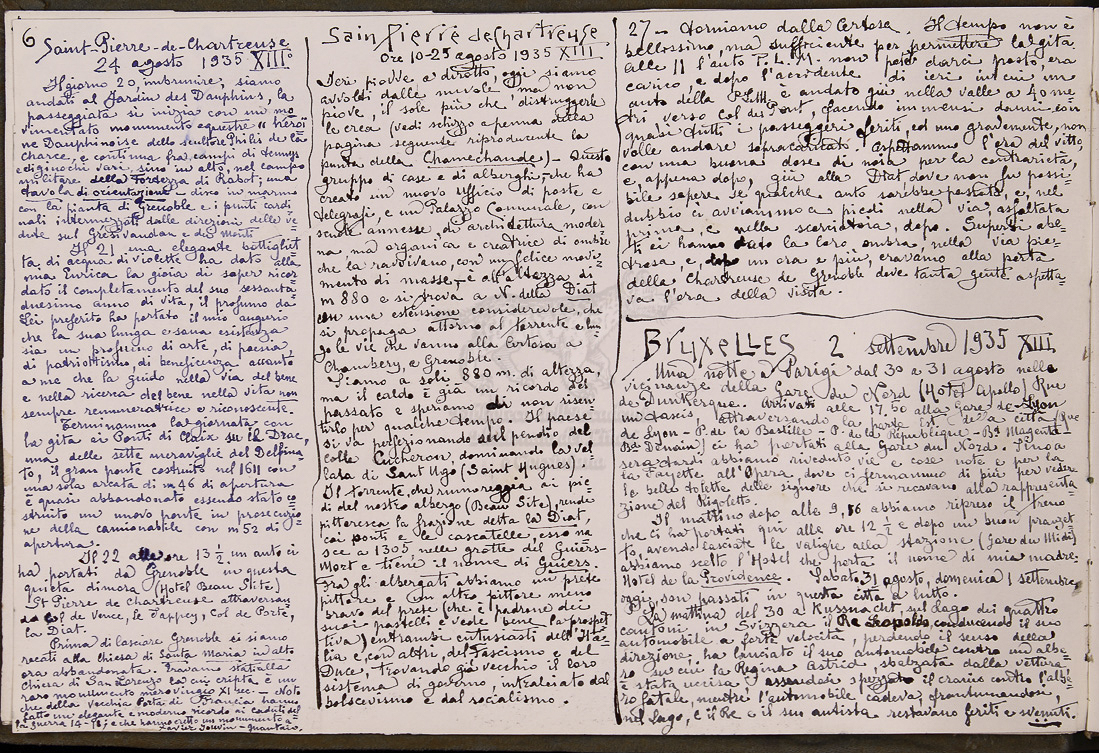 6
Saint-Pierre-de-Chartreuse
24 agosto 1935 XIII°
Il giorno 20, imbrunire, siamo
andati al Jardin des Dauphins, la
passeggiata si inizia con un mo-
vimentato monumento equestre "heroï
ne Dauphinoise dello scultore Philis de la
charce, e continua fra campi di tennys
e di giuochi vari, sino in alto, nel campo
militare della Fortezza di Rabot; una
tavola di orientazione - disco in marmo
con la pianta di Grenoble e i punti cardi
nali intermezzati dalle direzioni delle ve
dute sul Gresivaudan e dei monti
Il 21 una elegante bottigliet
ta di acqua di violette ha dato alla
mia Enrica la gioia di saper ricor
dato il completamento del suo sessanta
duesimo anno di vita, il profumo da
Lei preferito ha portato il mio augurio
che la sua lunga e sana esistenza
sia un profumo di arte, di poesia,
di patriottismo, di beneficenza accanto
a me che la guido nella via del bene
e nella ricerca del bene nella vita non
sempre remuneratrice e riconoscente.
Terminammo la giornata con
la gita ai Ponti di Claix su le Drac,
una delle sette meraviglie del Delfina-
to, il gran ponte costruito nel 1611 con
una sola arcata di m 46 di apertura
è quasi abbandonato essendo stato co
struito un nuovo ponte in prosecuzio
ne della camionabile con m 52 di
apertura.
Il 22 alle ore 13 ½ un auto ci
ha portati da Grenoble in questa
quieta dimora (Hotel Beau Site)
St Pierre de Chartreuse attraversan
do Col de Vence, le Sappey, Col de Porte,
la Diat.
Prima di lasciare Grenoble ci siamo
recati alla Chiesa di Santa Maria in alto
ora abbandonata. Eravamo stati alla
chiesa di San Lorenzo la cui cripta è un
raro monumento merovingio XI sec. - Noto
che della Vecchia Porta di Francia hanno
fatto un' elegante e moderno ricordo ai caduti del
la guerra 14-18; e che hanno eretto un monumento a
Xavier Jouvin - guantaio.
Sain Pierre de Chartreuse
Ore 10-25 agosto 1935 XIII
Ieri piovve a dirotto, oggi siamo
avvolti dalle nuvole ma non
piove, il sole più che distruggerle
le crea (vedi schizzo a penna della
pagina seguente riproducente la
punta della Chamechaude) - Questo
gruppo di case e di alberghi, che ha
creato un nuovo ufficio di poste e
telegrafi, e un Palazzo Comunale, con
scuole annesse, di architettura moder-
na, ma organica e creatrice di ombre
che la ravvivano, con un felice movi-
mento di masse, è all'altezza di
m 880 e si trova a N. della Diat
con una estensione considerevole, che
si propaga attorno al torrente e lun-
go le vie che vanno alla Certosa a
Chambery, e Grenoble.
Siamo a soli 880 m. di altezza,
ma il caldo è già un ricordo del
passato e speriamo di non risen
tirlo per qualche tempo. Il paese
si va perfezionando sul pendio del
colle Cucheron dominando la val
lata di Sant'Ugo (Saint Hugues)
Il torrente, che rumoreggia ai pie
di del nostro albergo (Beau Site), rende
pittoresca la frazione detta la Diat,
coi ponti e le cascatelle, esso na
sce a 1305, nelle grotte del Guiers-
Mort e tiene il nome di Guiers.
Fra gli albergati abbiamo un prete
pittore e un altro pittore meno
bravo del prete (che è padrone dei
suoi pastelli e vede bene la prospet
tiva) entrambi entusiasti dell'Ita
lia e, con altri, del Fascismo e del
Duce, trovando già vecchio il loro
sistema di governo, intralciato dal
bolscevismo e dal socialismo.
27 - torniamo dalla Certosa. Il tempo non è
bellissimo, ma sufficiente per permettere la gita,
alle 11 l'auto P.L.M. non potè darci posto, era
carico, e dopo l'accidente di ieri in cui un
auto della P.L.M. è andato giù nella valle a 40 me
tri, verso Col des Pont, facendo immensi danni con
quasi tutti i passeggeri feriti, ed uno gravemente, non
volle andare sopracaricati. Aspettammo l'ora del vitto,
con una buona dose di noia per la contrarietà,
e, appena dopo, giù alla Diat dove non fu possi
bile sapere se qualche auto sarebbe passato, e, nel
dubbio ci avviammo a piedi nella via, asfaltata
prima, e nella scorciatoia, dopo. Superbi abe-
ti ci hanno dato la loro ombra, nella via pie-
trosa, e, dopo un ora e più, eravamo alla porta
della Chartreuse de Grenoble dove tanta gente aspetta
va l'ora della visita.
BRUXELLES 2 settembre 1935 XIII
Una notte a Parigi dal 30 a 31 agosto nelle
vicinanze della Gare du Nord (Hotel Apollo) Rue
de Dunkerque. Arrivati alle 17,50 alla Gare de Lyon
un taxis, attraversando la parte Est della città (Rue
de Lyon - P. de la Bastille - P. de la République - Bd Magenta -
Bd Denain) ci ha portati alla Gare du Nord. Sino a
sera tardi abbiamo riveduto vie e cose note e per la
La Fayette all'Opera, dove ci fermammo di più per vedere
le belle toilette delle signore che si recavano alla rappresenta-
zione del Rigoletto.
Il mattino dopo alle 9,56 abbiamo ripreso il treno
che ci ha portati qui alle ore 12 ½ e dopo un buon pranzet
to, avendo lasciate le valigie alla stazione (Gare du Midi)
abbiamo scelto l'Hotel che porta il nome di mia madre.
Hotel de la Providence. Sabato, 31 agosto, domenica 1 settembre,
oggi, son passati in questa città a lutto.
La mattina del 30 a Kussnacht, sul lago dei quattro
cantoni, in Svizzera il Re Leopoldo, conducendo il suo
automobile a forte velocità, perdendo il senso della
direzione, ha lanciato il suo automobile contro un albe-
ro su cui la Regina Astrid, sbalzata dalla vettura,
è stata uccisa essendosi spezzato il cranio contro l'albe-
ro fatale, mentre l'automobile cadeva, frantumandosi,
nel lago, e il Re e il suo autista restavano feriti e svenuti.